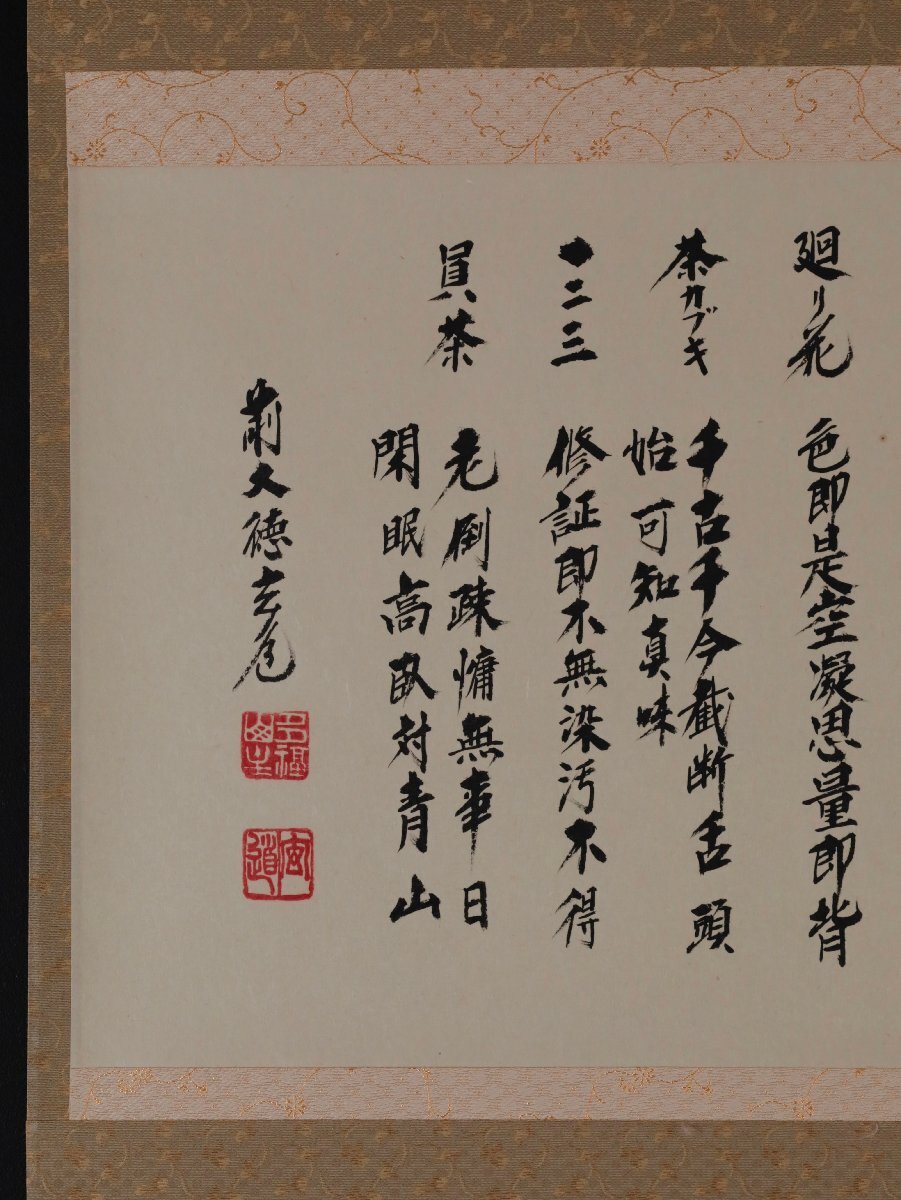 廻リ花
色即是空凝思量即背
茶カブキ
千古千今截断舌頭
始可知真味
一二三
修証即不無染汚不得
員茶
老倒疎慵無事日
閑眠高臥対青山
前大徳玄